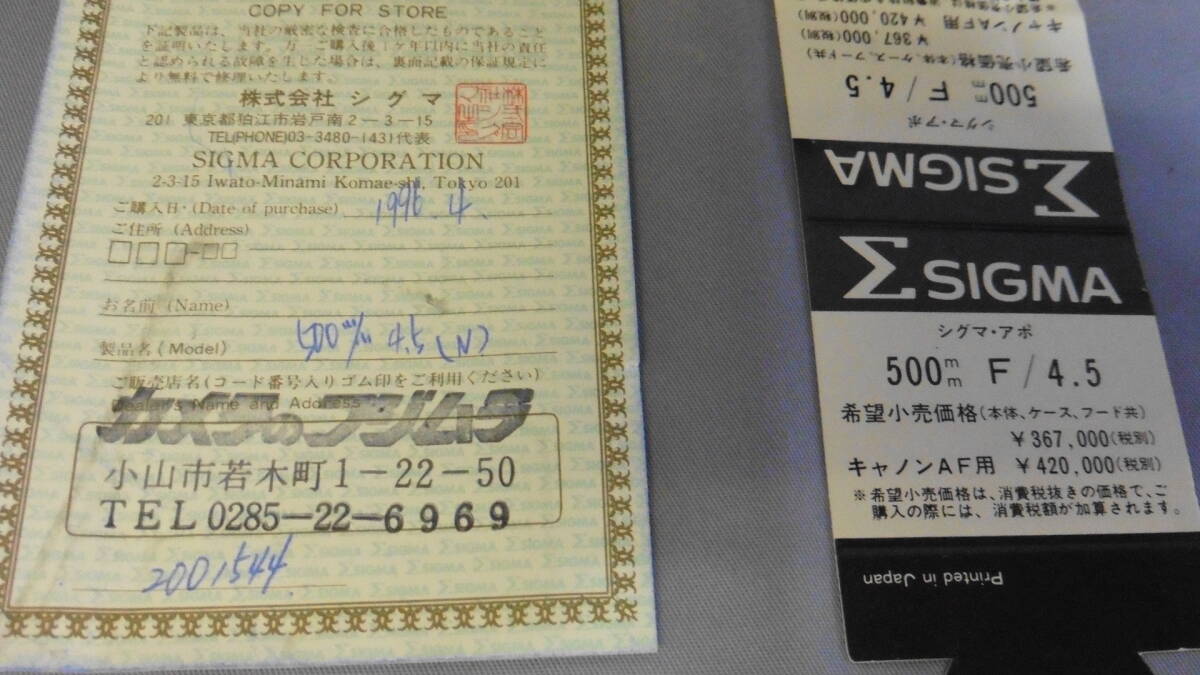 COPY FOR STORE
下記製品は、当社の厳密な検査に合格したものであること
を証明いたします。万一ご購入後1ヶ年以内に当社の責任
と認められる故障を生じた場合は、裏面記載の保証規定に
より無料で修理いたします。
株式会社 シグマ
201 東京都狛江市岩戸南2-3-15
TEL(PHONE)03-3480-1431代表
SIGMA CORPORATION
2-3-15 Iwato-Minami Komae-shi, Tokyo 201
ご購入日・(Date of purchase) 1996.4.
ご住所 (Address)
お名前 (Name)
製品名 (Model) 500m/m 4.5(N)
ご販売店名(コード番号入りゴム印をご利用ください)
Dealer's Name and Address
カメラのフジムラ
小山市若木町1-22-50
TEL0285-22-6969
2001544
¥420,000(税別)
キャノンAF用
¥367,000(税別)
希望小売価格(本体、ケース、フード共)
500mm F/4.5
シグマ・アポ
ΣSIGMA
ΣSIGMA
シグマ・アポ
500mm F/4.5
希望小売価格(本体、ケース、フード共)
¥367,000(税別)
キャノンAF用 ¥420,000(税別)
※希望小売価格は、消費税抜きの価格で、ご
購入の際には、消費税額が加算されます。
Printed in Japan